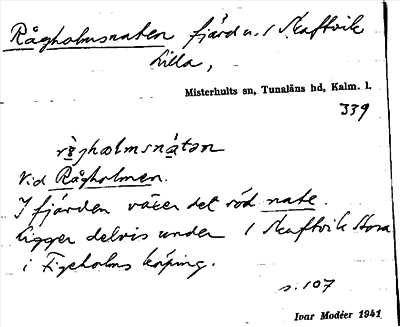 Rågholmsnaten fjärd u. / Skaftvik
Lilla,
Misterhults sn, Tunaläns hd, Kalm. l.
339
Vid Rågholmen.
I fjärden växer det röd nate.
Ligger delvis under / Skaftvik Stora
i Figeholms köping.
s. 107
Ivar Modéer 1941